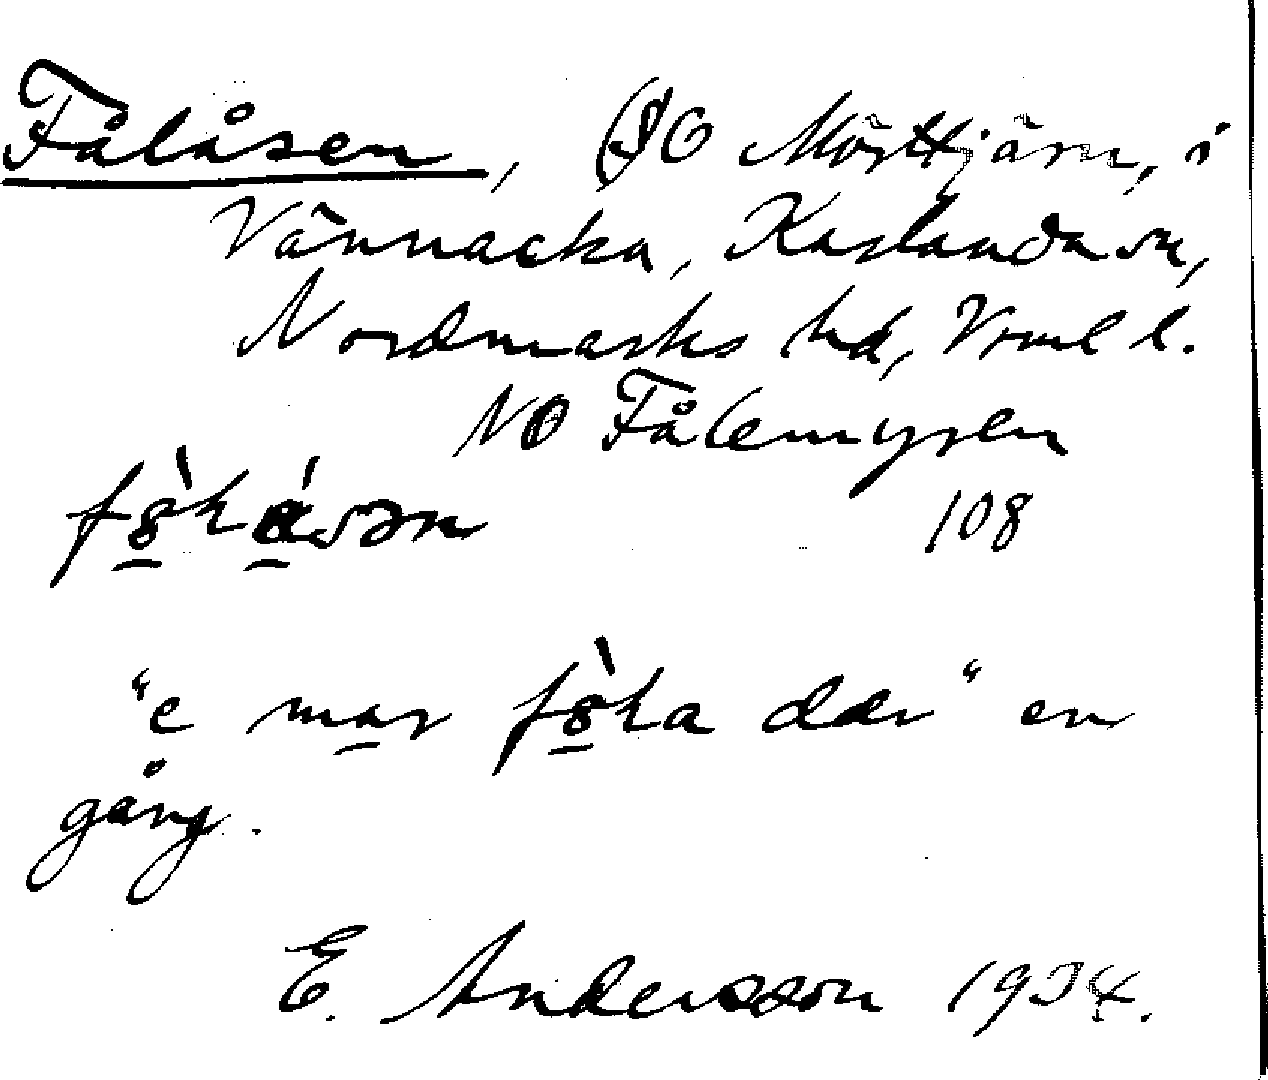 Fålåsen, (SO Mörttjärn, i
Vännacka, Karlanda sn,
Nordmarks hd, Vrml l.
NO Fålemysen
108
"e mar da" en
gång.
E. Andersson 1934.